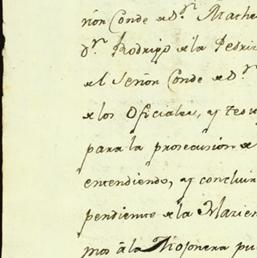 ñon Conde de D.ⁿ Mache
D.ⁿ Rodrigo de la Pedriz
el Señon Conde de D.ⁿ
de los Oficiales, y test
para la prosecusion de
entendiendo, y concluir
pendiente de la Marien
mos â la Mojonera pu